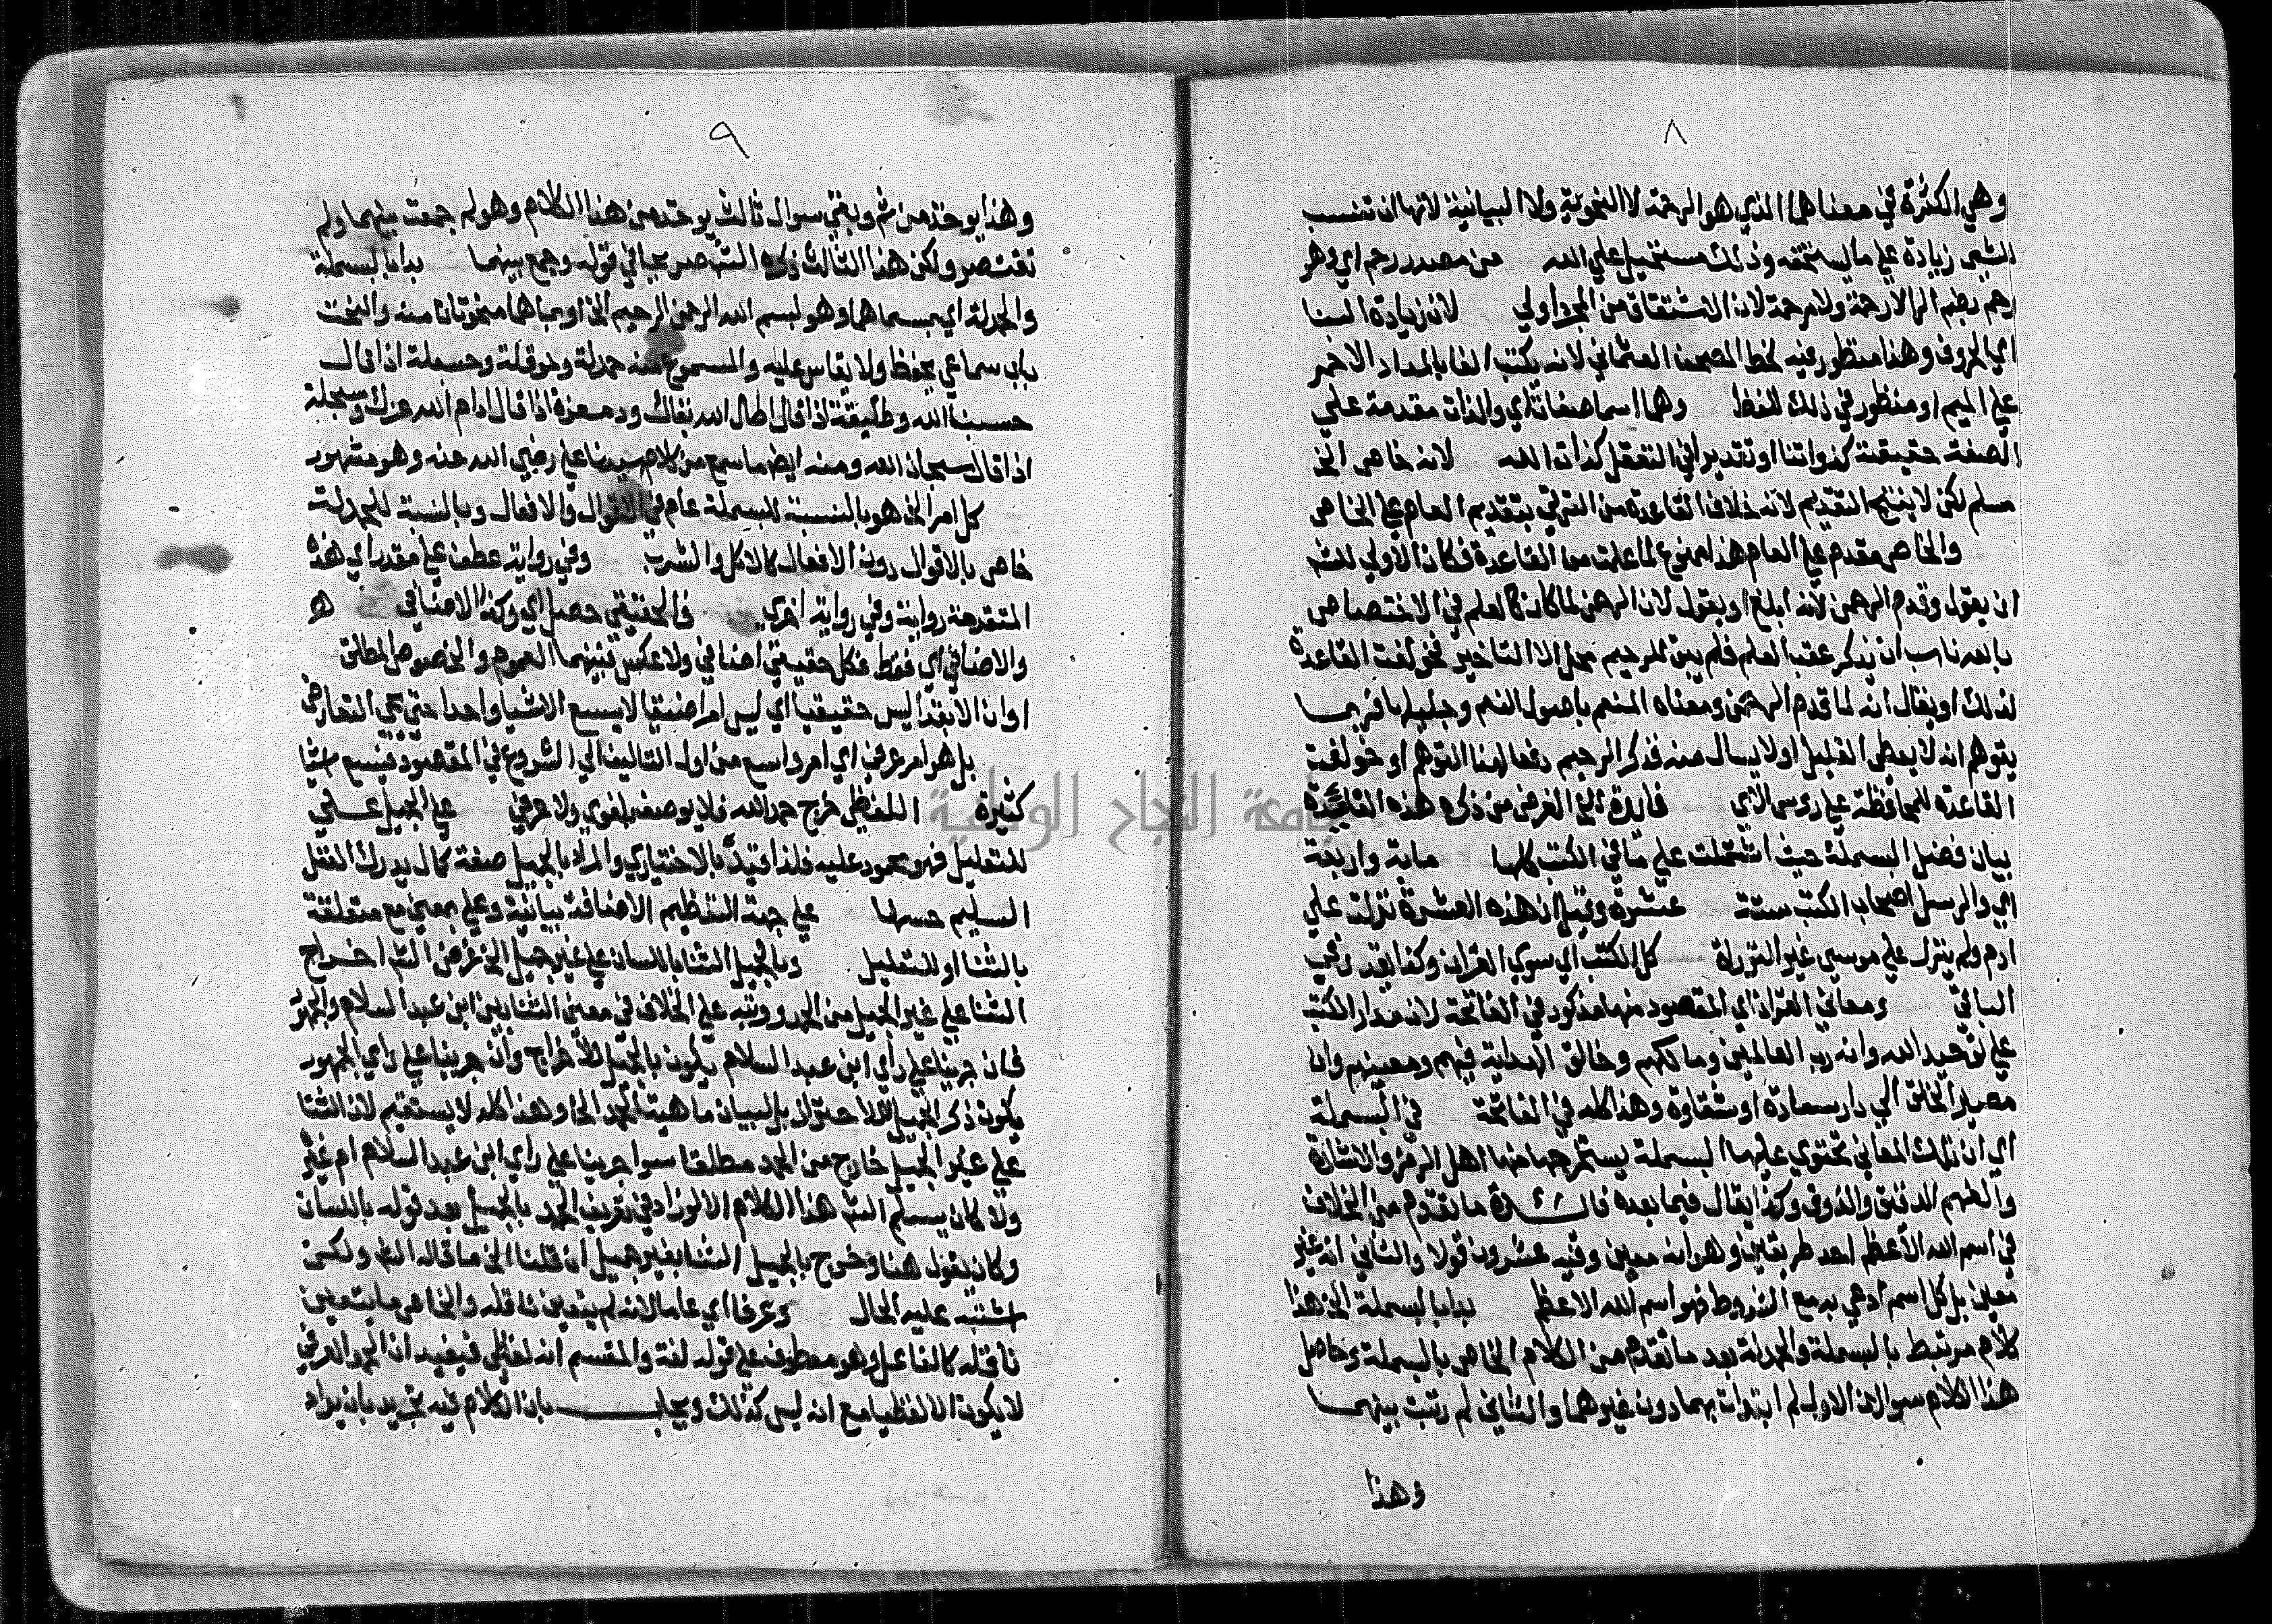 ٨
وهي الكثرة في معناها الذي هو الرحمة لا النحوية ولا البيانية لانها ان تنسب
للشي زيادة علي ما يستحقه وذلك مستحيل علي الله من مصدر رحم اي وهو
رحم بضم الرا لا رحمة ولا مرحمة لان الاشتقاق من المجرد اولي لان زيادة البنا
اي الحروف وهذا منظور فيه لخط المصحف العثماني لانه يكتب الفا بالمداد الاحمر
علي الميم او منظور في ذلك للفظ وهما اسما صفات اي والذات مقدمة علي
الصفة حقيقة كذواتنا او تقديرا في التعقل كذات الله لانه خاص الخ
مسلم لكن لا ينتج التقديم لانه خلاف القاعدة من الترقي بتقديم العام علي الخاص
والخاص مقدم علي العام هذا ممنوع لما علمت من القاعدة فكان الاولي للشم
ان يقول وقدم الرحمن لانه ابلغ او يقول لان الرحمن لما كان كالعلم في الاختصاص
بالله ناسب ان يذكر عقب العلم فلم يبق للرحيم محل الا التاخير فخولفت القاعدة
لذلك او يقال انه لما قدم الرحمن ومعناه المنعم باصول النعم وجليلها فربما
يتوهم انه لا يعطي القليل او لا يسال منه فذكر الرحيم دفعا لهذا التوهم او خولفت
القاعدة للمحافظة علي روس الاي فائدة الخ الغرض من ذكره هذه الفائدة
بيان فضل البسملة حيث اشتملت علي ما في الكتب كلها ماية واربعة
اي والرسل اصحاب الكتب ستة عشرة وقيل ان هذه العشرة نزلت علي
ادم ولم ينزل علي موسي غير التوراة كل الكتب اي سوي القران وكذا يقد في
الباقي ومعاني القران اي المقصود منها مذكور في الفاتحة لان مدار الكتب
علي توحيد الله وانه رب العالمين ومالكهم وخالق الهداية فيهم ومعينهم وان
مصير الخلق الي دار سعادة او شقاوة وهذا كله في الفاتحة في البسملة
اي ان تلك المعاني تحتوي عليها البسملة يستخرجها منها اهل الرمز والاشارة
والفهم الدقيق والذوق وكذا يقال فيما بعده فائدة ما تقدم من الخلاف
في اسم الله الاعظم احد طريقين وهو انه معين وفيه عشرون قولا والثاني انه غير
معين بل كل اسم ادعي به مع الشروط فهو اسم الله الاعظم بدا بالبسملة الخ هذا
كلام مرتبط بالبسملة والحمدلة بعد ما تقدم من الكلام الخاص بالبسملة وحاصل
هذا الكلام سوالان الاول لم ابتدات بهما دون غيرهما والثاني لم رتبت بينهما
وهذا
٩
وهذا يوخذ من ثم وبقي سوال ثالث يوخذ من هذا الكلام وهو لم جمعت بينهما ولم
تقتصر ولكن هذا الثالث ذكره الش صريحا في قوله وجمع بينهما بدا بالبسملة
والحمدلة اي بمسماهما وهو بسم الله الرحمن الرحيم الخ او بما هما منحوتان منه والنحت
باب سماعي يحفظ ولا يقاس عليه والمسموع منه حمدلة وحوقلة وحسبلة اذا قال
حسبنا الله وطلبقة اذا قال اطال الله بقاك ودمعزة اذا قال ادام الله عزك وسبحلة
اذا قال سبحان الله ومنه ايض ما سمع من كلام سيدنا علي رضي الله عنه وهو مشهور
كل امر الخ هو بالنسبة للبسملة عام في الاقوال والافعال وبالنسبة للحمدلة
خاص بالاقوال دون الافعال كالاكل والشرب وفي رواية عطف علي مقدر اي هذه
المتقدمة رواية وفي رواية اخري فالحقيقي حصل اي وكذا الاضافي ه
والاضافي اي فقط فكل حقيقي اضافي ولا عكس فبينهما العموم والخصوص المطلق
او ان الابتدا ليس حقيقيا اي ليس امرا ضيقا لا يسع الا شيا واحدا حتي يجي التعارض
بل هو امر عرفي اي امر واسع من اول التاليف الي الشروع في المقصود فيسع اشيا
كثيرة اللفظي خرج حمد الله فلا يوصف بلغوي ولا عرفي علي الجميل علي
للتعليل فهو محمود عليه فلذا قيد بالاختياري والمراد بالجميل صفة كمال يدرك العقل
السليم حسنها علي جهة التعظيم الاضافة بيانية وعلي بمعني مع متعلقة
بالثنا او للتعليل وبالجميل الثنا باللسان علي غير جميل الخ غرض الش اخراج
الثنا علي غير الجميل من الحمد ورتبه علي الخلاف في معني الثنا بين ابن عبد السلام والجمهور
فان جرينا علي راي ابن عبد السلام يكون بالجميل للاخراج وان جرينا علي راي الجمهور
يكون ذكر الجميل لا للاحتراز بل لبيان ماهية الحمد الخ وهذا كله لا يستقيم لان الثنا
علي غير الجميل خارج من الحمد مطلقا سوا جرينا علي راي ابن عبد السلام ام غيره
ولا كان يستقيم للش هذا الكلام الا لو زاد في تعريف الحمد بالجميل بعد قوله باللسان
وكان يقول هنا وخرج بالجميل الثنا بغير جميل ان قلنا الخ ما قاله الش ولكن
اشتبه عليه الحال وعرفا اي عاما لانه لم يتعين ناقله والخاص ما يتعين
ناقله كالفاعل وهو معطوف علي قوله لغة والمقسم انه لفظي فيفيد ان الحمد العرفي
لا يكون الا لفظيا مع انه ليس كذلك ويجاب بان الكلام فيه تجريد بان يراد
جامعة النجاح الوطنية